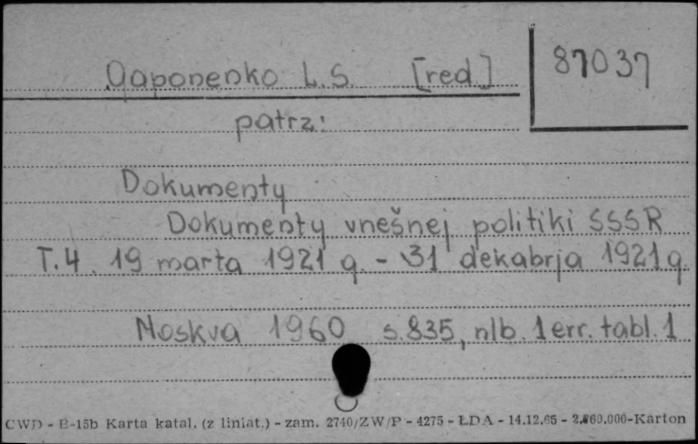 Gaponenko L.S. [red.] 87037
patrz:
Dokumenty
Dokumenty vnešnej politiki SSSR
T.4. 19 marta 1921 g. - 31 dekabrja 1921 g.
Moskva 1960 s.835, nlb. 1 err. tabl. 1
CWD - E-15b Karta katal. (z liniat.) - zam. 2740/ZW/P - 4275 - ŁDA - 14.12.65 - 2.860.000-Karton